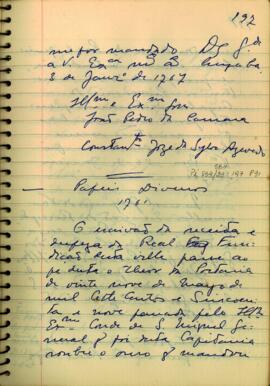 192
me por mandado Ds g.de
a V. Exa ms as Cuyaba
3 de Janr.o de 1767
Ill.mo e Exm.o Snr
João Pedro da Camara
Constant.e Joze da Sylva Azevedo
Papeis Diversos
1761
O escrivão da receita e
despeza da Real Fun
dicao desta villa passe ao
pe deste o theor da Portaria
de vinte nove de Março de
mil Sete Centos e Sincoen
ta e nove passada pelo Ill.mo
Ex.mo Conde de S. Miguel Ge
neral q foi desta Capitania
sombre o ouro q mandou